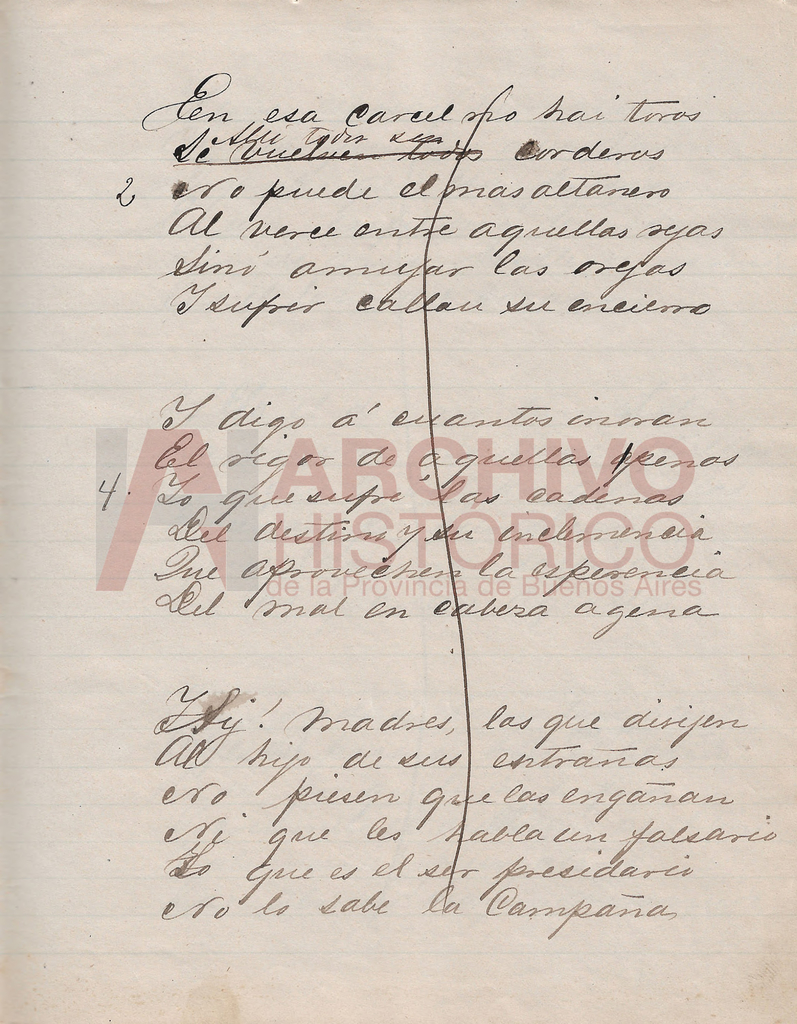 En esa carcel no hai toros
Alli todos son
Se vuelven todos corderos
2 No puede el mas altanero
Al verse entre aquellas rejas
Sinó amujar las orejas
I sufrir callau su encierro
I digo á cuantos inoran
El rigor de aquellas penas
4. Yo que sufrí las cadenas
Del destino y su inclemencia
Que aprovechen la esperencia
Del mal en cabeza agena
ARCHIVO
HISTÓRICO
de la Provincia de Buenos Aires
Ay! madres, las que dirijen
Al hijo de sus entrañas
No piesen que las engañan
Ni que les habla un falsario
Lo que es el ser presidario
No lo sabe la Campaña